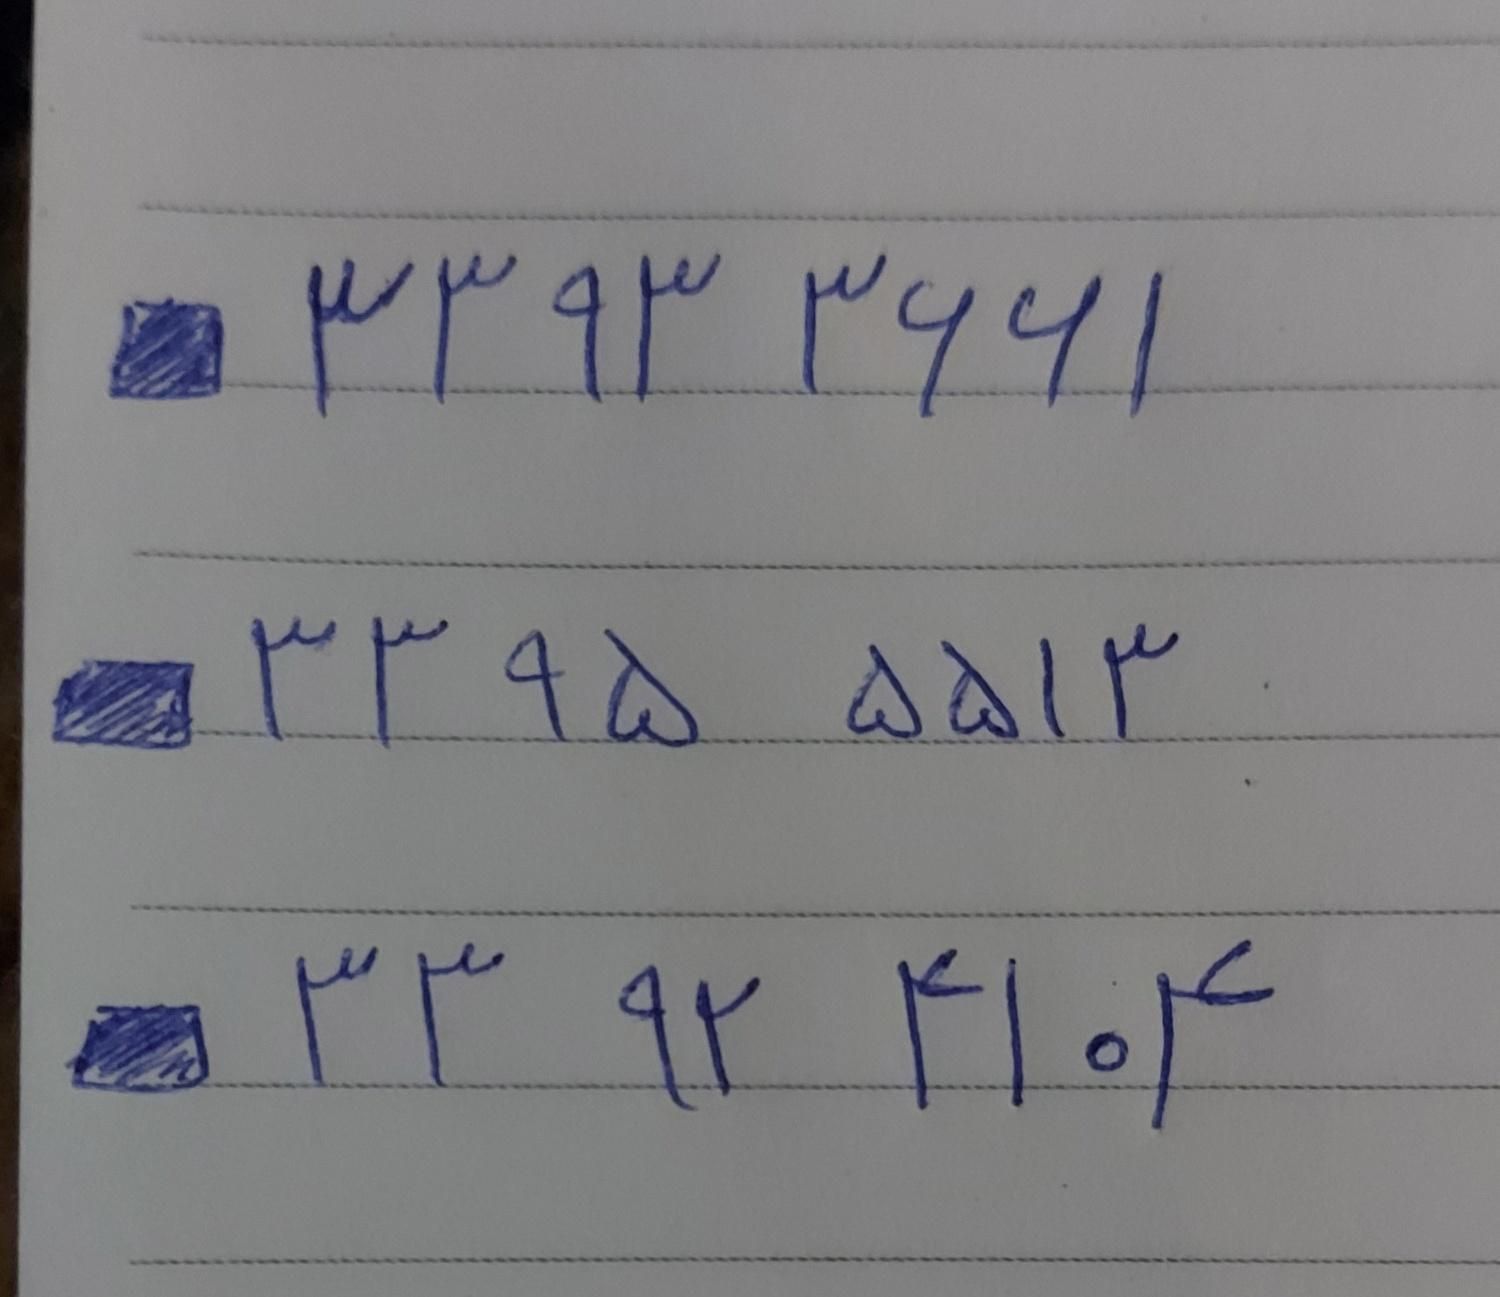 ۳۳۹۳ ۳۶۶۱
۳۳۹۵ ۵۵۱۳
۳۳ ۹۲ ۴۱۰۴